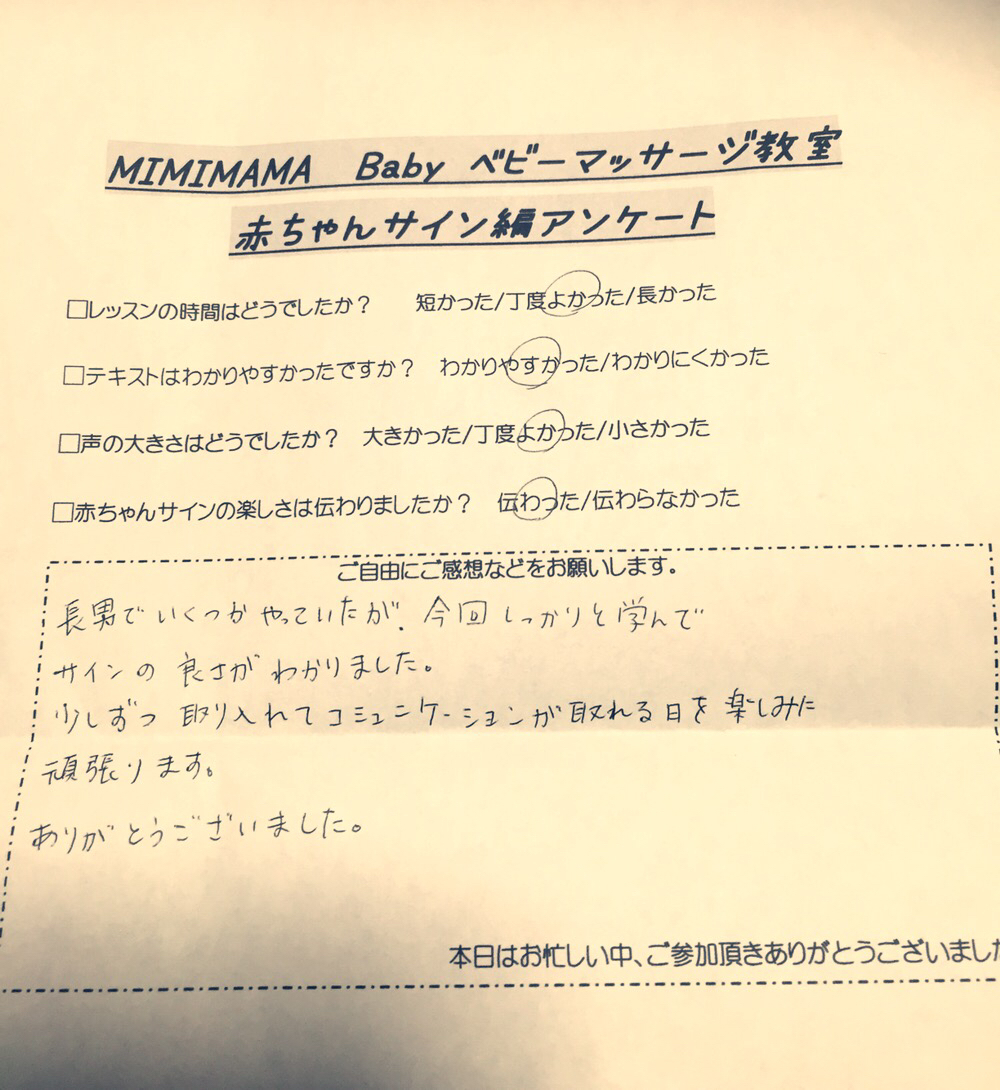 MIMIMAMA Baby ベビーマッサージ教室
赤ちゃんサイン編アンケート
□レッスンの時間はどうでしたか? 短かった/丁度よかった/長かった
□テキストはわかりやすかったですか? わかりやすかった/わかりにくかった
□声の大きさはどうでしたか? 大きかった/丁度よかった/小さかった
□赤ちゃんサインの楽しさは伝わりましたか? 伝わった/伝わらなかった
ご自由にご感想などをお願いします。
長男でいくつかやっていたが、今回しっかりと学んで
サインの良さがわかりました。
少しずつ取り入れてコミュニケーションが取れる日を楽しみに
頑張ります。
ありがとうございました。
本日はお忙しい中、ご参加頂きありがとうございました